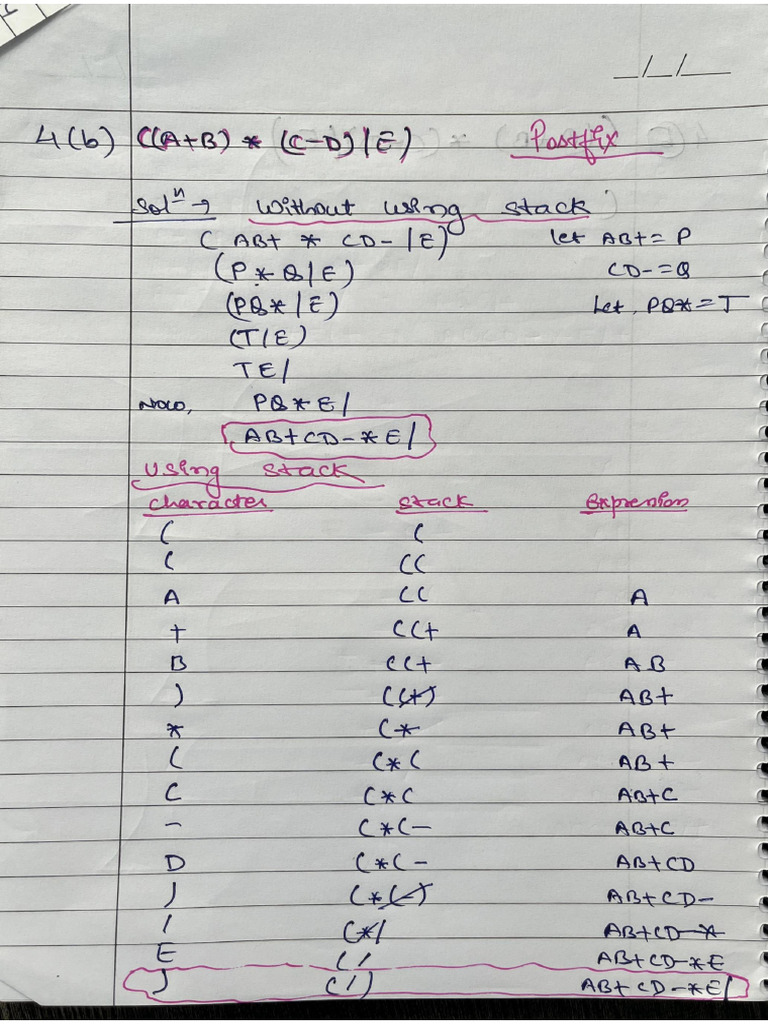 _/_/__
4(b) ((A+B) * (C-D)/E) Postfix
Solⁿ → Without using stack
( AB+ * CD- /E) let AB+ = P
(P * Q/E) CD- = Q
(PQ* /E) Let, PQ* = T
(T/E)
TE/
Now, PQ*E/
AB+CD-*E/
Using stack
character stack Expression
( (
( ((
A (( A
+ ((+ A
B ((+ AB
) ((+) AB+
* (* AB+
( (*( AB+
C (*( AB+C
- (*(- AB+C
D (*(- AB+CD
) (*(-) AB+CD-
/ (*/ AB+CD-*
E (/ AB+CD-*E
) (/) AB+CD-*E/